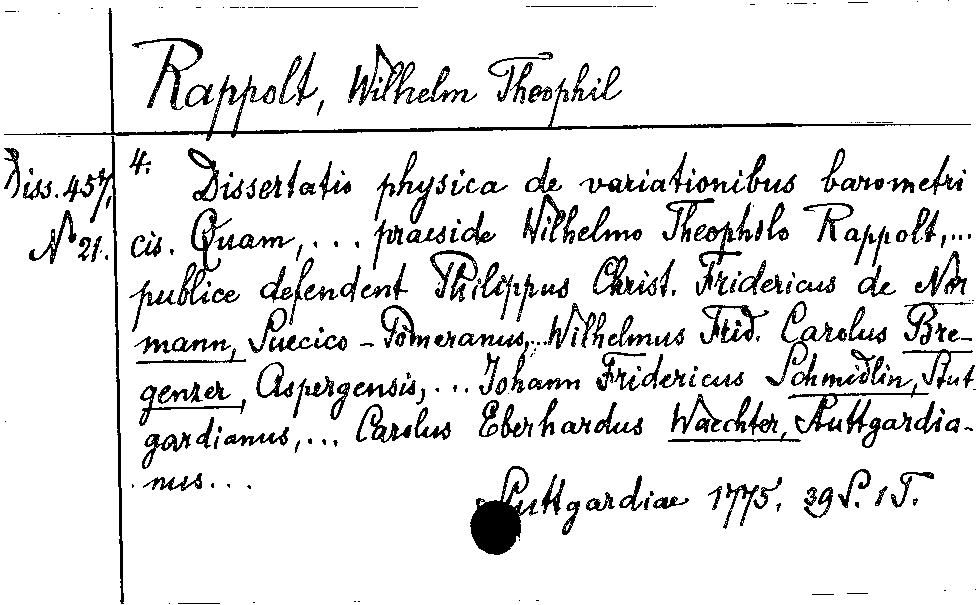 Rappolt, Wilhelm Theophil
Diss. 457, 4. Dissertatio physica de variationibus barometri
N° 21. cis. Quam, ... praeside Wilhelmo Theophilo Rappolt, ...
publice defendent Philippus Christ. Fridericus de Nor
mann, Suecico-Pomeranus, .. Wilhelmus Frid. Carolus Bre-
genzer, Aspergensis, ... Johann Fridericus Schmidlin, Stut
gardianus, ... Carolus Eberhardus Waechter, Stuttgardia-
nus ...
Stuttgardiae 1775. 39 S. 1 T.